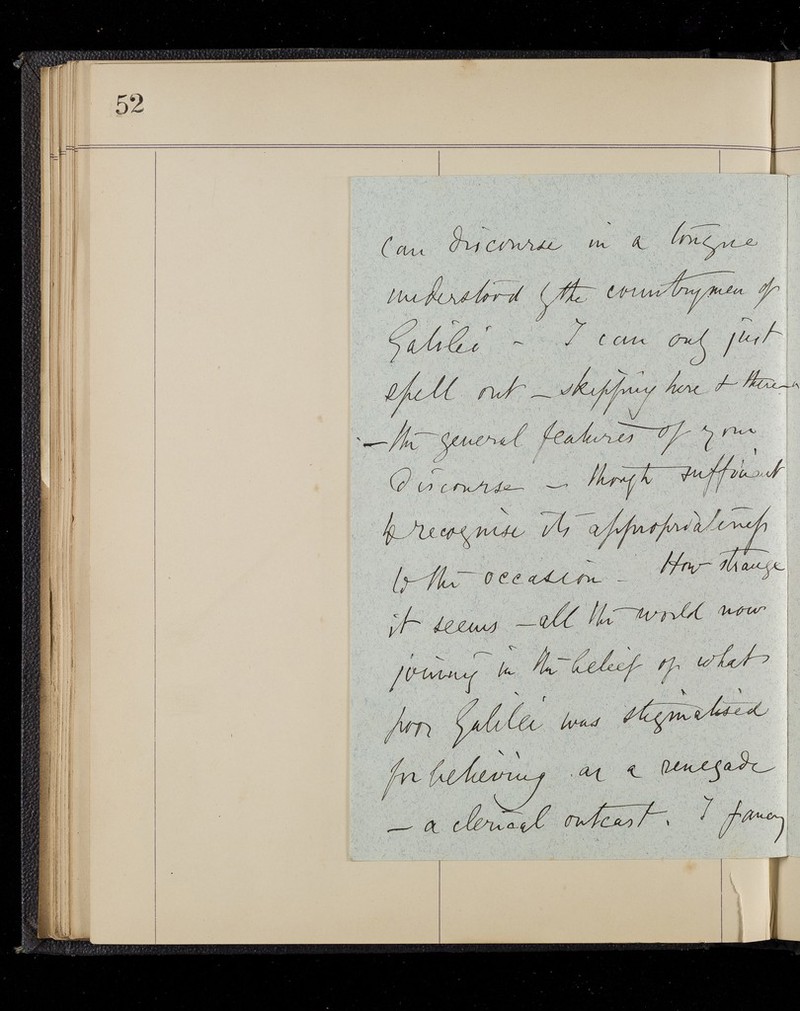 52
can discourse in a tongue
understood by the countrymen of
Galilei - I can only just
spell out - skipping here & there
- the general features of your
discourse - though sufficient
to recognise its appropriateness
to the occasion - How strange
it seems - all the world now
joining in the belief of what
poor Galilei was stigmatised
for believing as a renegade
- a clerical outcast. I fancy